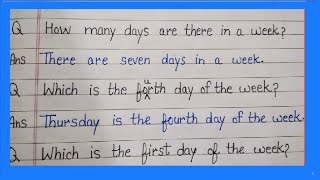 Q How many days are there in a week?
Ans There are seven days in a week.
Q Which is the fourth day of the week?
Ans Thursday is the fourth day of the week.
Q Which is the first day of the week?